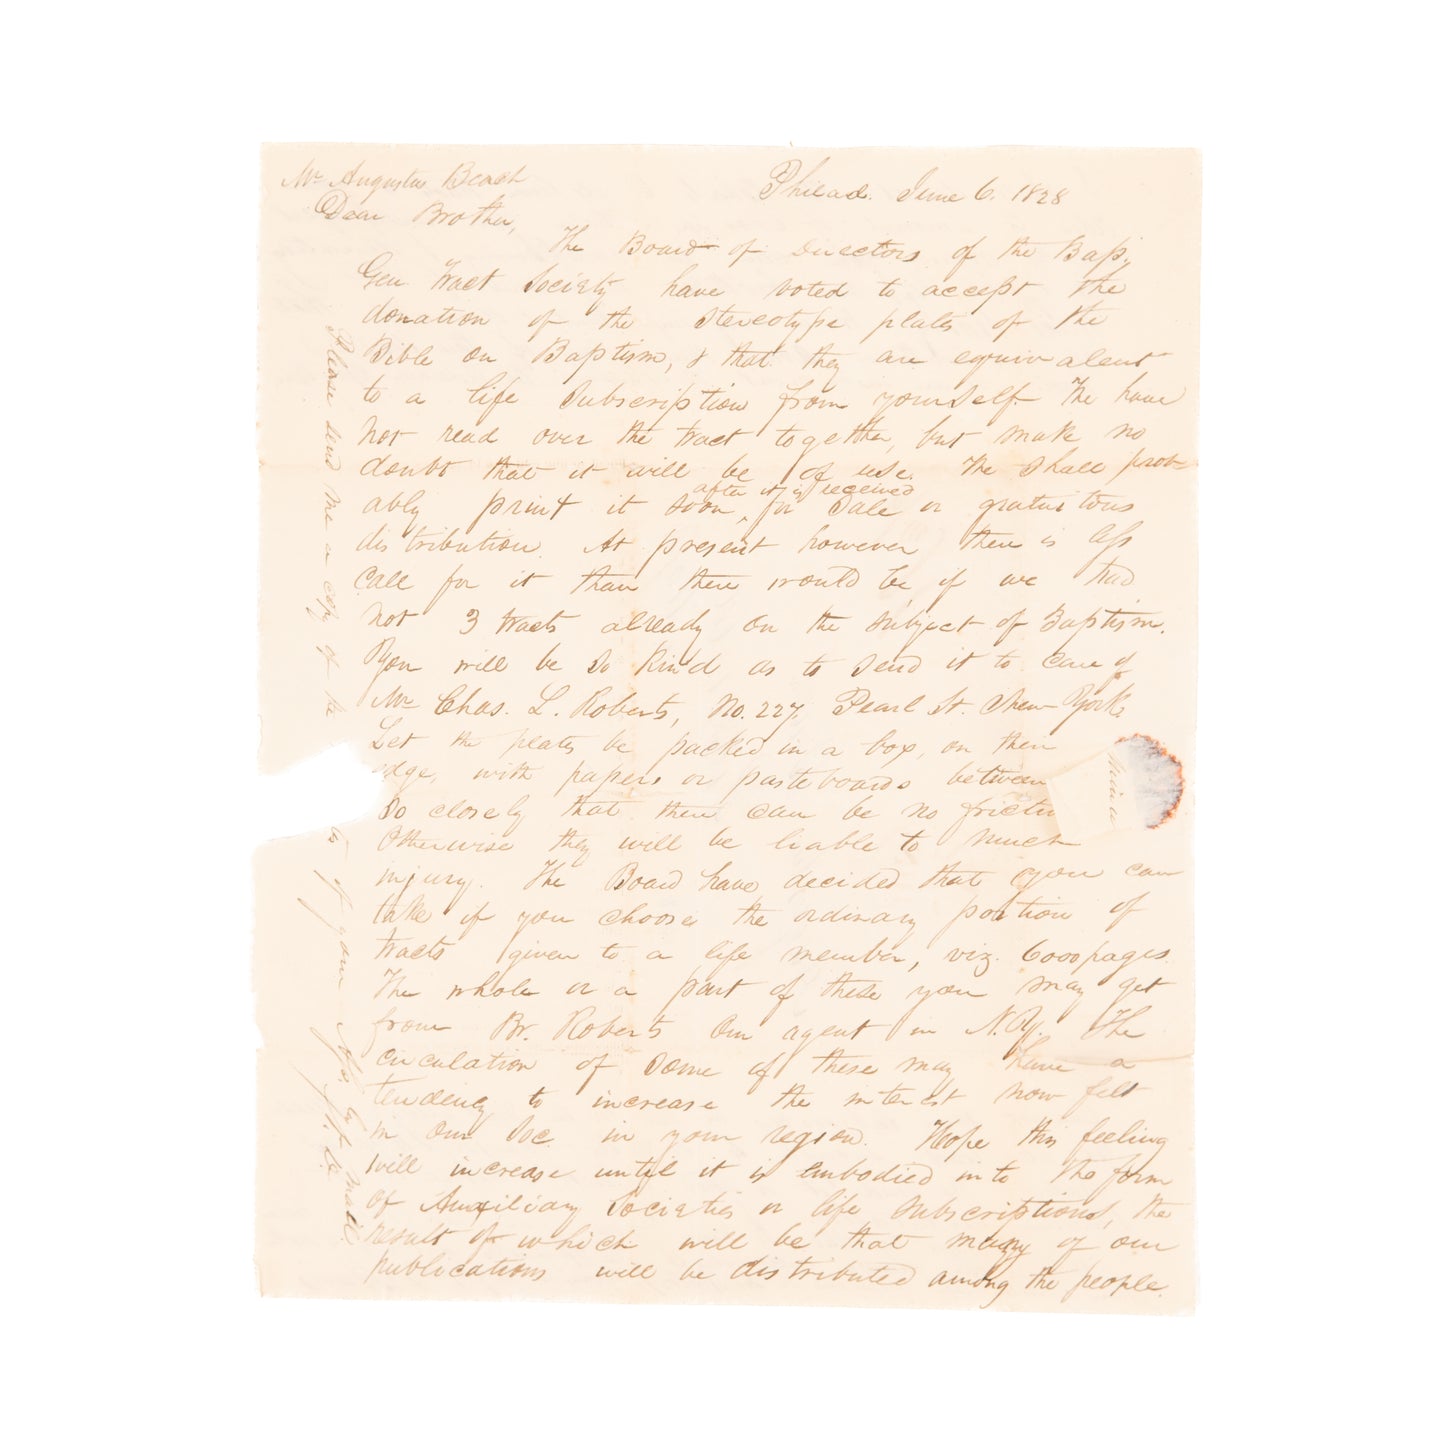 Mr Augustus Beach
Philad. June 6. 1828
Dear Brother,
The Board of Directors of the Bap.
Gen. Tract Society have voted to accept the
donation of the Stereotype plates of the
Bible on Baptism, & that they are equivalent
to a life Subscription from yourself. We have
not read over the tract together, but make no
doubt that it will be of use. We shall prob-
after it is received
ably print it soon, for Sale or gratuitous
distribution. At present however there is less
call for it than there would be, if we had
not 3 tracts already on the subject of Baptism.
You will be so kind as to send it to care of
Mr Chas. L. Roberts, No. 227, Pearl St. New-York
Let the plates be packed in a box, on their
edge, with papers or pasteboards between
So closely that there can be no frictio
Otherwise they will be liable to much
injury. The Board have decided that you can
take if you choose the ordinary portion of
tracts given to a life member, viz. 6000 pages.
The whole or a part of these you may get
from Br. Roberts our agent in N.Y. The
circulation of some of these may have a
tendency to increase the interest now felt
in our Soc. in your region. Hope this feeling
will increase until it is embodied into the form
of Auxiliary Societies or life subscriptions, the
result of which will be that many of our
publications will be distributed among the people.
Please send me a copy of the
of your by mail